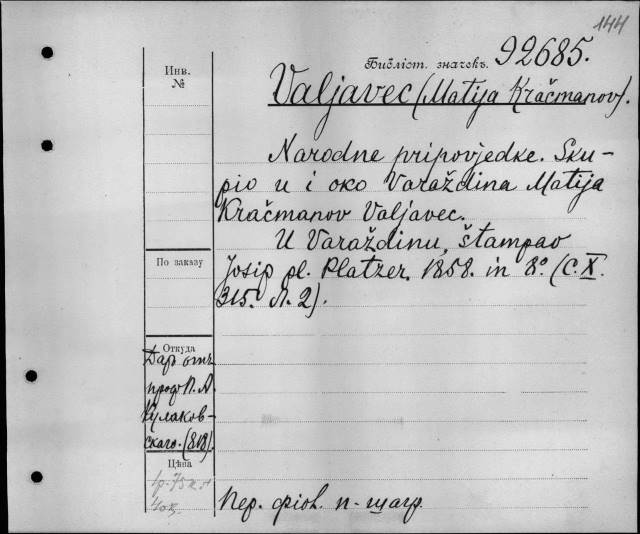 144
Библіот. значекъ. 92685.
Инв.
№
Valjavec (Matija Kračmanov).
Narodne pripovjedke. Sku-
pio u i oko Varaždina Matija
Kračmanov Valjavec.
U Varaždinu, štampao
По заказу
Josip pl. Platzer. 1858. in 8º. (C. X.
315. Л. 2).
Откуда
Даръ отъ
проф. П. А.
Кулаков-
скаго. (818).
Цѣна
1р. 75к.
40к.
Пер. фіол. п-шагр.